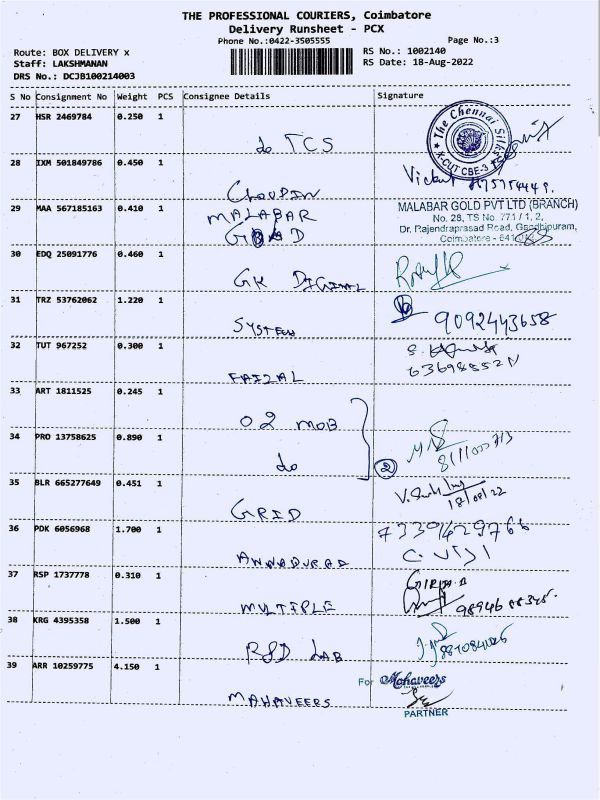 THE PROFESSIONAL COURIERS, Coimbatore
Delivery Runsheet - PCX
Phone No.:0422-3505555 Page No.:3
Route: BOX DELIVERY x RS No.: 1002140
Staff: LAKSHMANAN RS Date: 18-Aug-2022
DRS No.: DCJB100214003
S No Consignment No Weight PCS Consignee Details Signature
27 HSR 2469784 0.250 1
do TCS
The Chennai Silks
X-CUT CBE-3
28 IXM 501849786 0.450 1
29 MAA 567185163 0.410 1
MALABAR
GOLD
MALABAR GOLD PVT LTD (BRANCH)
No. 28, TS No. 771 / 1, 2,
Dr. Rajendraprasad Road, Gandhipuram,
Coimbatore -
30 EDQ 25091776 0.460 1
GK DIGITAL
31 TRZ 53762062 1.220 1
SYSTEM
9092443658
32 TUT 967252 0.300 1
FAIZAL
33 ART 1811525 0.245 1
O2 MOB
34 PRO 13758625 0.890 1
do
2
35 BLR 665277649 0.451 1
GRID
18/08/22
36 PDK 6056968 1.700 1
ANNADURAI
C. VIJI
37 RSP 1737778 0.310 1
MULTIPLE
38 KRG 4395358 1.500 1
LAB
39 ARR 10259775 4.150 1
MAHAVEERS
For Mahaveers
PARTNER